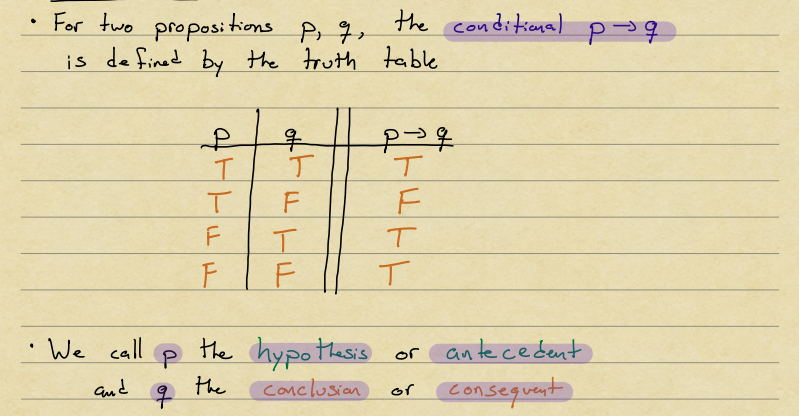 • For two propositions p, q, the conditional p → q
is defined by the truth table
p q p → q
T T T
T F F
F T T
F F T
• We call p the hypothesis or antecedent
and q the conclusion or consequent